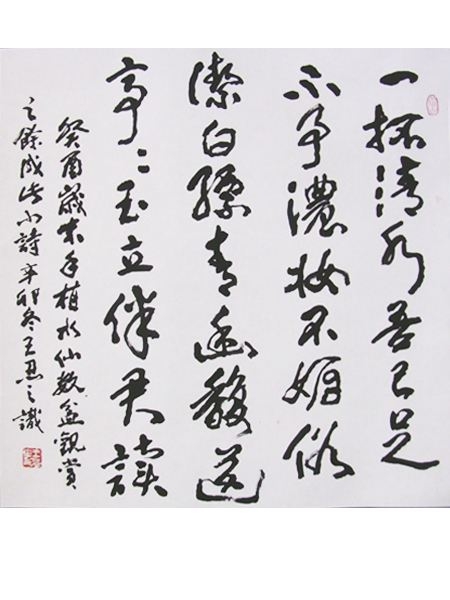 一杯清水吾已足
不争濃妝不媚俗
潔白縹青幽馥送
亭〻玉立伴君讀
癸酉歲末手植水仙數盆觀賞
之餘成此小詩辛卯冬王之識